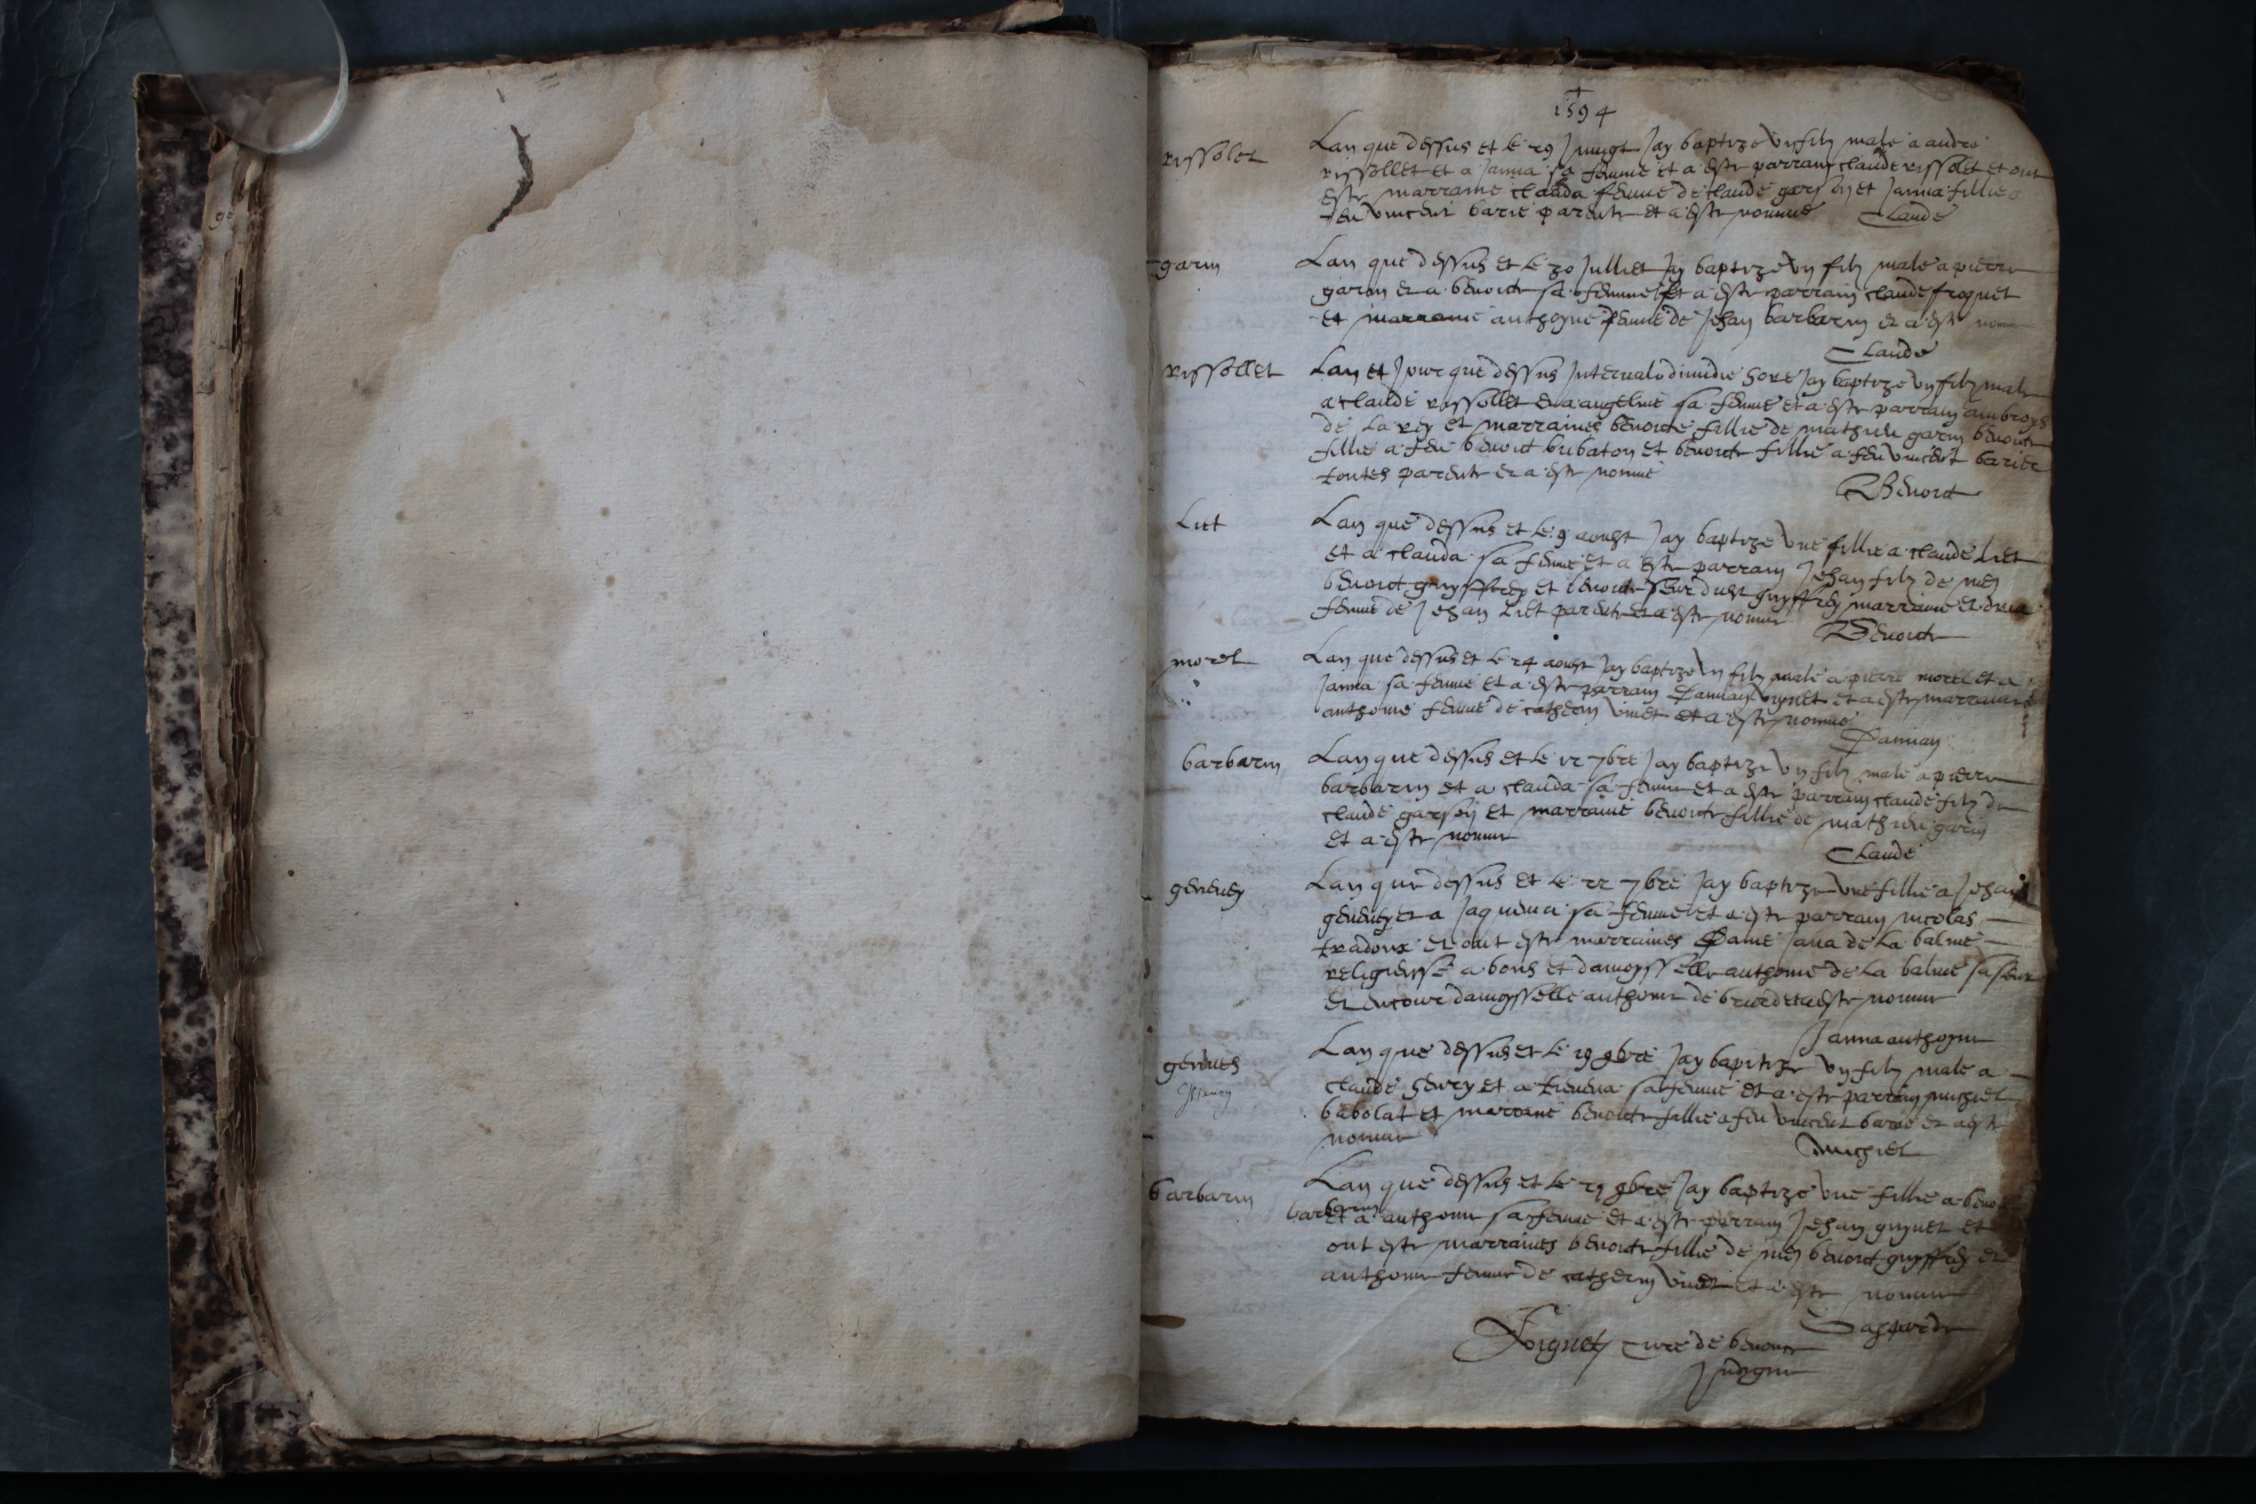 1594
rissolet
Lan que dessus et le 29 Jungt Jay baptize ung filz male a andre
rissollet et a Janna sa femme et a este parrain claude rissolet et ont
este marraine clauda femme de claude garson et Janna fillie a
feu vincent barie parente et a este nomme Claude
garin
Lan que dessus et le 30 Julliet Jay baptize ung filz male a pierre
garin et a benoite sa femme et a este parrain claude froquet
et marraine anthoyne femme de Jehan barbarin et a este nomme
Claude
rissollet
Lan et Jour que dessus Intervalo dimidie hore Jay baptize ung filz male
a claude rissollet et a angeline sa femme et a este parrain ambroys
de la rey et marraines benoite fillie de mathieu garin benoite
fillie a feu benoit bribaton et benoite fillie a feu vincent barier
toutes parente et a este nomme
Benoit
Liet
Lan que dessus et le 9 aoust Jay baptize une fillie a claude Liet
et a clauda sa femme et a este parrain Jehan filz de me
benoit guyffrey et benoite seur dudit guyffrey marraine et
femme de Jehan Liet parente et a este nomme
Benoite
morel
Lan que dessus et le 24 aoust Jay baptize ung filz male a pierre morel et a
Janna sa femme et a este parrain Damian vignet et a este marraine
anthoine femme de catherin vinet et a este nomme
Damian
barbarin
Lan que dessus et le 12 7bre Jay baptize ung filz male a pierre
barbarin et a clauda sa femme et a este parrain claude filz de
claude garson et marraine benoite fillie de mathieu garin
et a este nomme
Claude
genevey
Lan que dessus et le 22 7bre Jay baptize une fillie a Jehan
genevey et a Jaquema sa femme et a este parrain nicolas
tradoux et ont este marraines Dame Jana de la balme
religieusse a bons et damoysselle anthoine de la balme sa seur
et encour damoysselle anthoine de et a este nomme
Janna anthoyne
geneves
henry
Lan que dessus et le 19 9bre Jay baptize ung filz male a
claude henry et a tievena sa femme et a este parrain michiel
babolat et marrane benoite fillie a feu vincent barie et a este
nomme
michiel
barbarin
Lan que dessus et le 29 9bre Jay baptize une fillie a benoit
barbarin et a anthoine sa femme et a este parrain Jehan guynet et
ont este marraines benoite fillie de me benoit guyffrey et
anthoine femme de catherin vinet et a este nomme
Gasparde
Foignet cure de benonce
Indigne